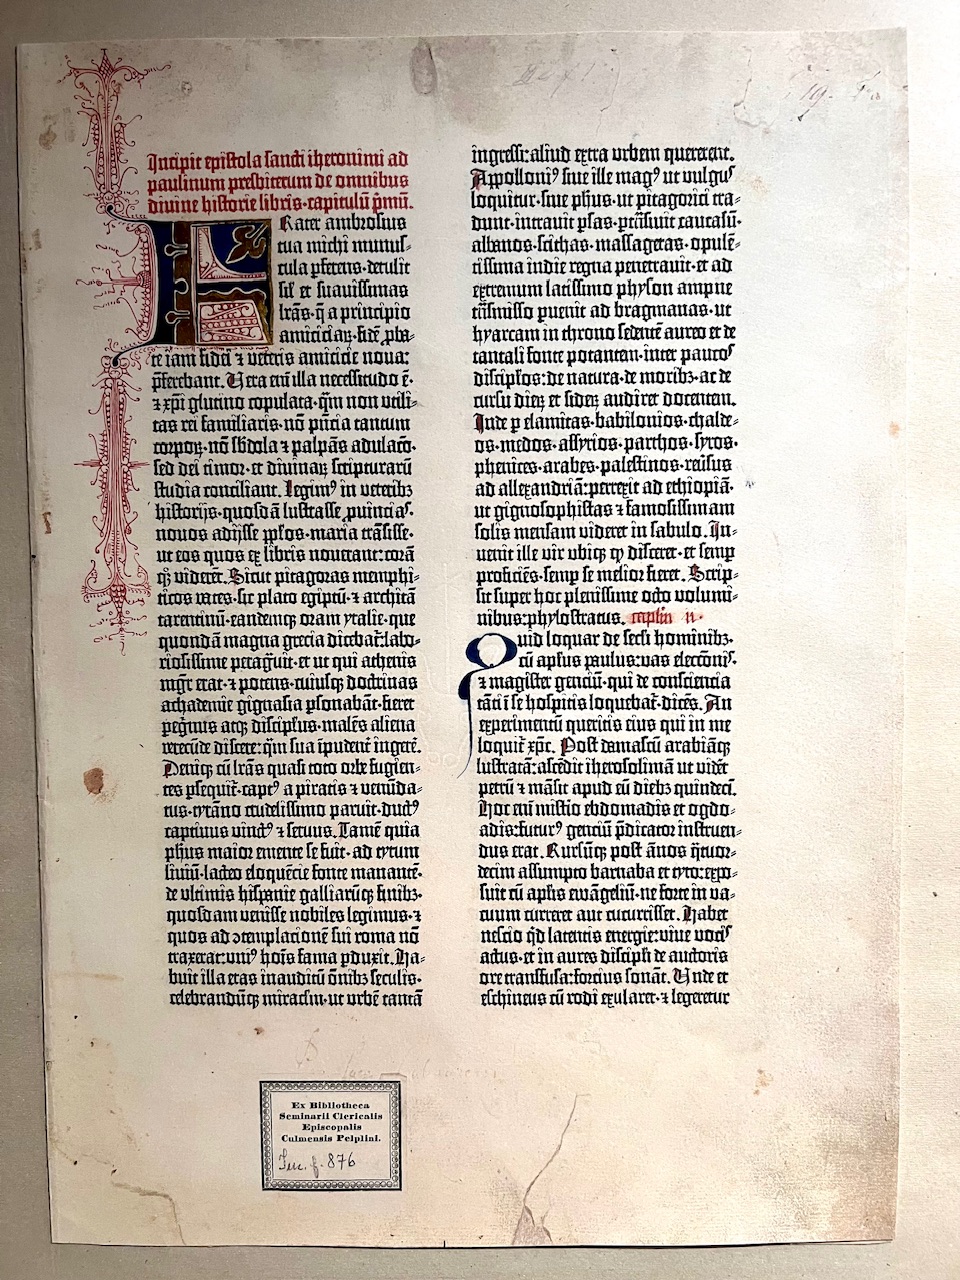 Incipit epistola sancti iheronimi ad
paulinum presbiterum de omnibus
divine historie libris·capitulū p̄mū.
Frater ambrosius
tua michi munus-
cula p̄ferens·detulit
sil̄ et suavissimas
lr̄as·q̄ a principio
amiciciaꝝ·fidē ꝓba-
te iam fidei ⁊ veteris amicicie nova:
p̄ferebant. Vera em̄ illa necessitudo ē·
⁊ xp̄i glutino copulata·qm̄ non utili-
tas rei familiaris·nō pn̄cia tantum
corpoꝝ·nō sb̄dola ⁊ palpās adulaco·
sed dei timor·et divinaꝝ scripturarū
studia conciliant. Legimꝰ in veteribꝫ
historijs·quosdā lustrasse ꝓvinciaˢ·
novos adijsse pp̄los·maria trāsisse·
ut eos quos ex libris noverant: corā
qꝫ viderēt. Sicut pitagoras memphi-
ticos vates·sic plato egiptū·⁊ architā
tarentinū·eandemqꝫ oram ytalie·que
quondā magna grecia dicebat̄: labo-
riosissime peragͥvit·et ut qui athenis
mgr̄ erat·⁊ potens·cuiusqꝫ doctrinas
achademie gignasia ꝑsonabāt·fieret
peg̓nus atqꝫ discipl̓us·malēs aliena
verecūde discere: qm̄ sua īpudent̓ ingerē.
Deniqꝫ cū lr̄as quasi toto orbe fugien-
tes ꝑsequit̓·captꝰ a piratis ⁊ venūda-
tus·tyrāno crudelissimo paruit·ductꝰ
captivus vinctꝰ ⁊ servus. Tamē quia
ph̄us maior emente se fuit·ad tytum
liviū·lacteo eloquēcie fonte manantē·
de ultimis hispanie galliarūqꝫ finibꝫ·
quosdam venisse nobiles legimus·⁊
quos ad ꝯtemplacionē sui roma nō
traxerat: uniꝰ hoīs fama ꝑduxit. Ha-
buit illa etas inauditū ōnibꝫ seculis·
celebrandūqꝫ miraclm̄·ut urbē tantā
ingressi: aliud extra urbem quererent.
Appolloniꝰ sive ille magꝰ ut vulguˢ
loquitur·sive ph̄us·ut pitagorici tra-
dunt·intravit ꝑsas·ꝑtrāsivit caucasū·
albanos·scithas·massagetas·opulē-
tissima indie regna penetravit·et ad
extremum latissimo physon ampne
trāsmisso ꝑvenit ad bragmanas·ut
hyarcam in throno sedentē aureo et de
tantali fonte potantem·inter paucoˢ
discipl̓os: de natura·de moribꝫ·ac de
cursu dieꝝ et sideꝝ audiret docentem.
Inde ꝑ elamitas·babilonios·chalde-
os·medos·assyrios·parthos·syros·
phenices·arabes·palestinos·rev̓sus
ad allexandriā: perrexit ad ethiopiā·
ut gignosophistas ⁊ famosissimam
solis mensam videret in sabulo. In-
venit ille vir ubiqꝫ qͦ disceret·et semꝑ
proficiēs·semꝑ se melior fieret. Scrip-
sit super hoc plenissime octo volumi-
nibus: phylostratus. caplm̄ ii·
Quid loquar de secl̓i hominibꝫ·
cū aplūs paulus: vas elect̄oniˢ·
⁊ magister genciū·qui de consciencia
tāti ī se hospitis loquebat̓·dicēs. An
experimentū queritis eius qui in me
loquit̓ xp̄c. Post damascū arabiāqꝫ
lustratā: ascēdit iherosolimā ut vidēt
petrū ⁊ māsit apud eū diebꝫ quindeci.
Hoc em̄ mist̓io ebdomadis et ogdo-
adis: futurꝰ genciū p̄dicator instruen-
dus erat. Rursūqꝫ post ānos q̄tuor-
decim assumpto barnaba et tyto: expo-
suit cū apl̓is ewāgeliū·ne forte in va-
cuum curreret aut cucurrisset. Habet
nescio qͥd latentis energie: vive vociˢ
actus·et in aures discipli de auctoris
ore transfusa: forcius sonāt. Unde et
eschineus cū rodi exularet·⁊ legeretur
Ex Bibliotheca
Seminarii Clericalis
Episcopalis
Culmensis Pelplini.
Inc. f. 876